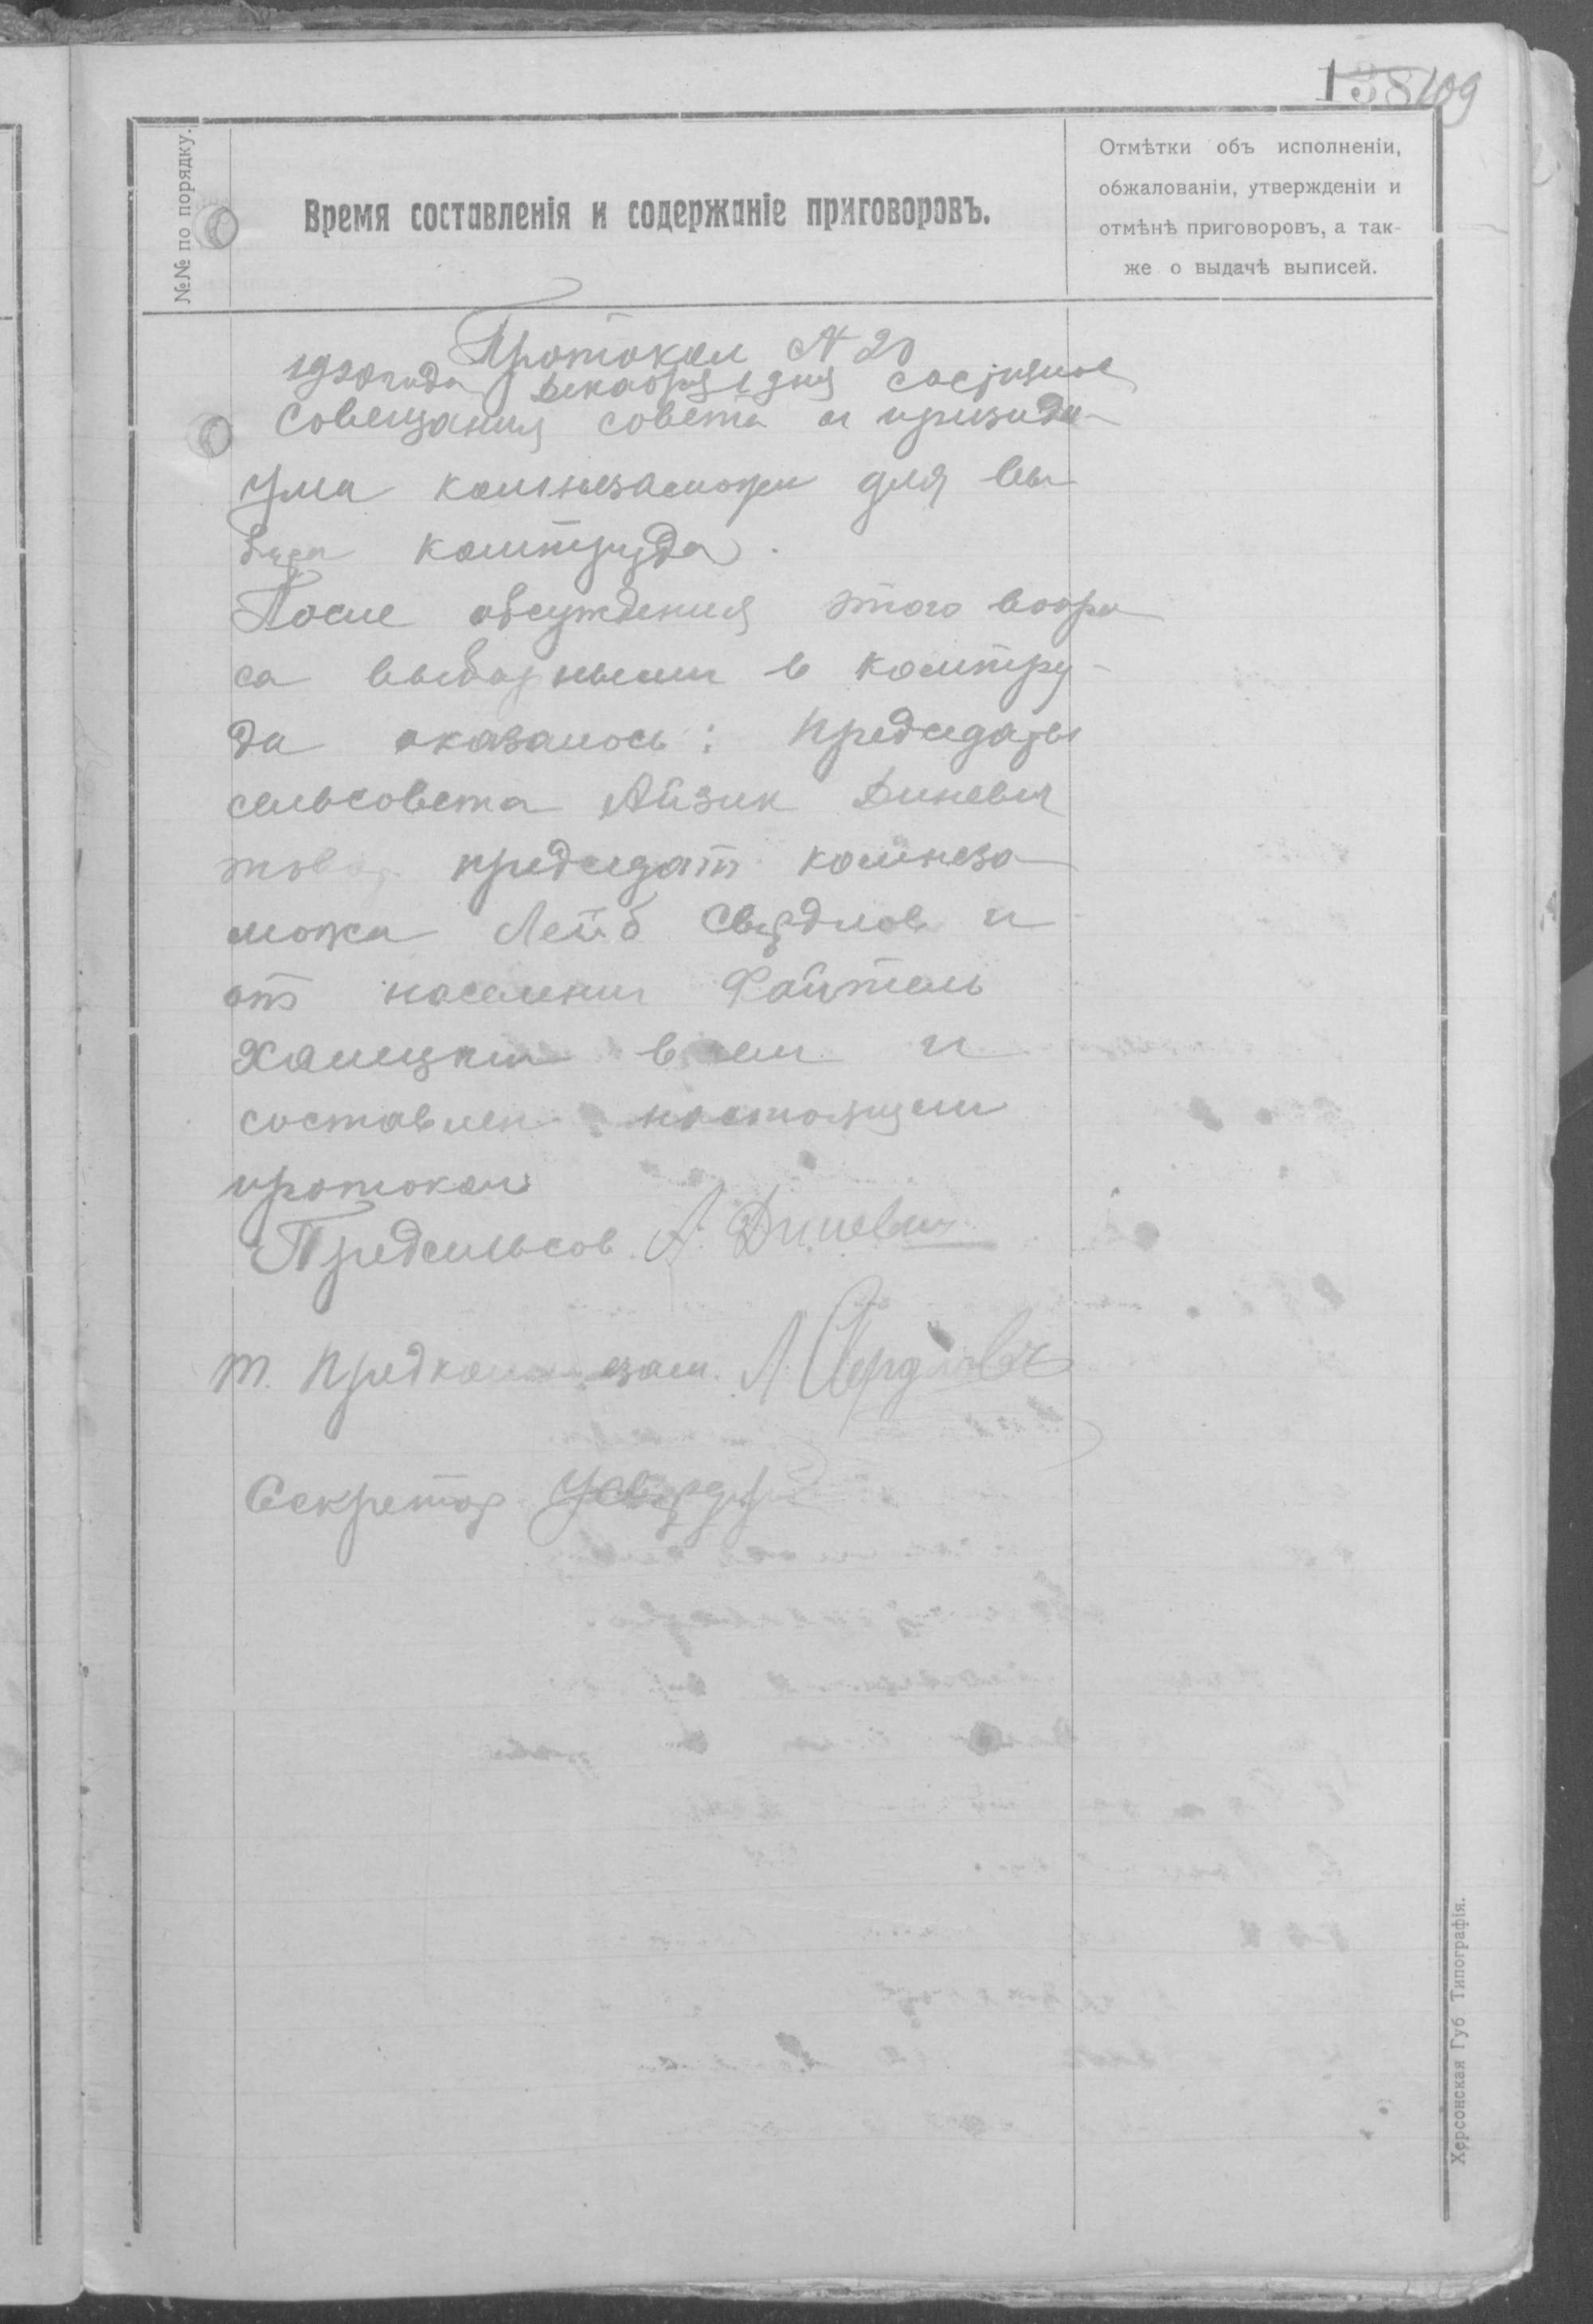 138 109
№№ по порядку.
Время составленія и содержаніе приговоровъ.
Отмѣтки объ исполненіи,
обжалованіи, утвержденіи и
отмѣнѣ приговоровъ, а так-
же о выдачѣ выписей.
Протокол № 20
1920 года Декабря 1 дня
Совещания совета и призиди-
ума комнезаможи для вы
бора комтруда.
После обсуждения этого вопро
са выборными в комтру-
да оказалось: Председаты
сельсовета Айзик Диневич
товар председат комнеза
можа Лейб Свердлов и
от населении Файтель
Хамецкий в чем и
составлен настоящем
протокол
Предсельсов. А. Диневич
т. Предком езам. Л. Свердлов
Секретар
Херсонская Губ Типографія.